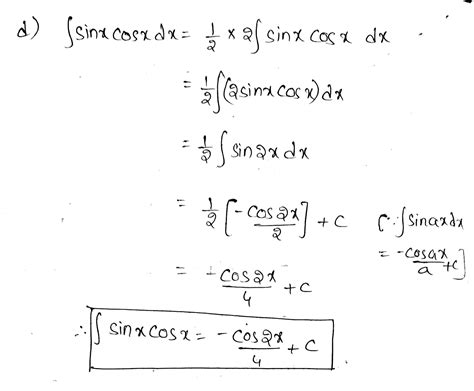 d) ∫sinx cosx dx = 1/2 × 2∫ sinx cosx dx
= 1/2 ∫(2sinx cosx) dx
= 1/2 ∫ sin2x dx
= 1/2 [-cos2x/2] + c [∵ ∫sinax dx
= -cosax/a + c]
= -cos2x/4 + c
∴ ∫ sinx cosx = - cos2x/4 + c